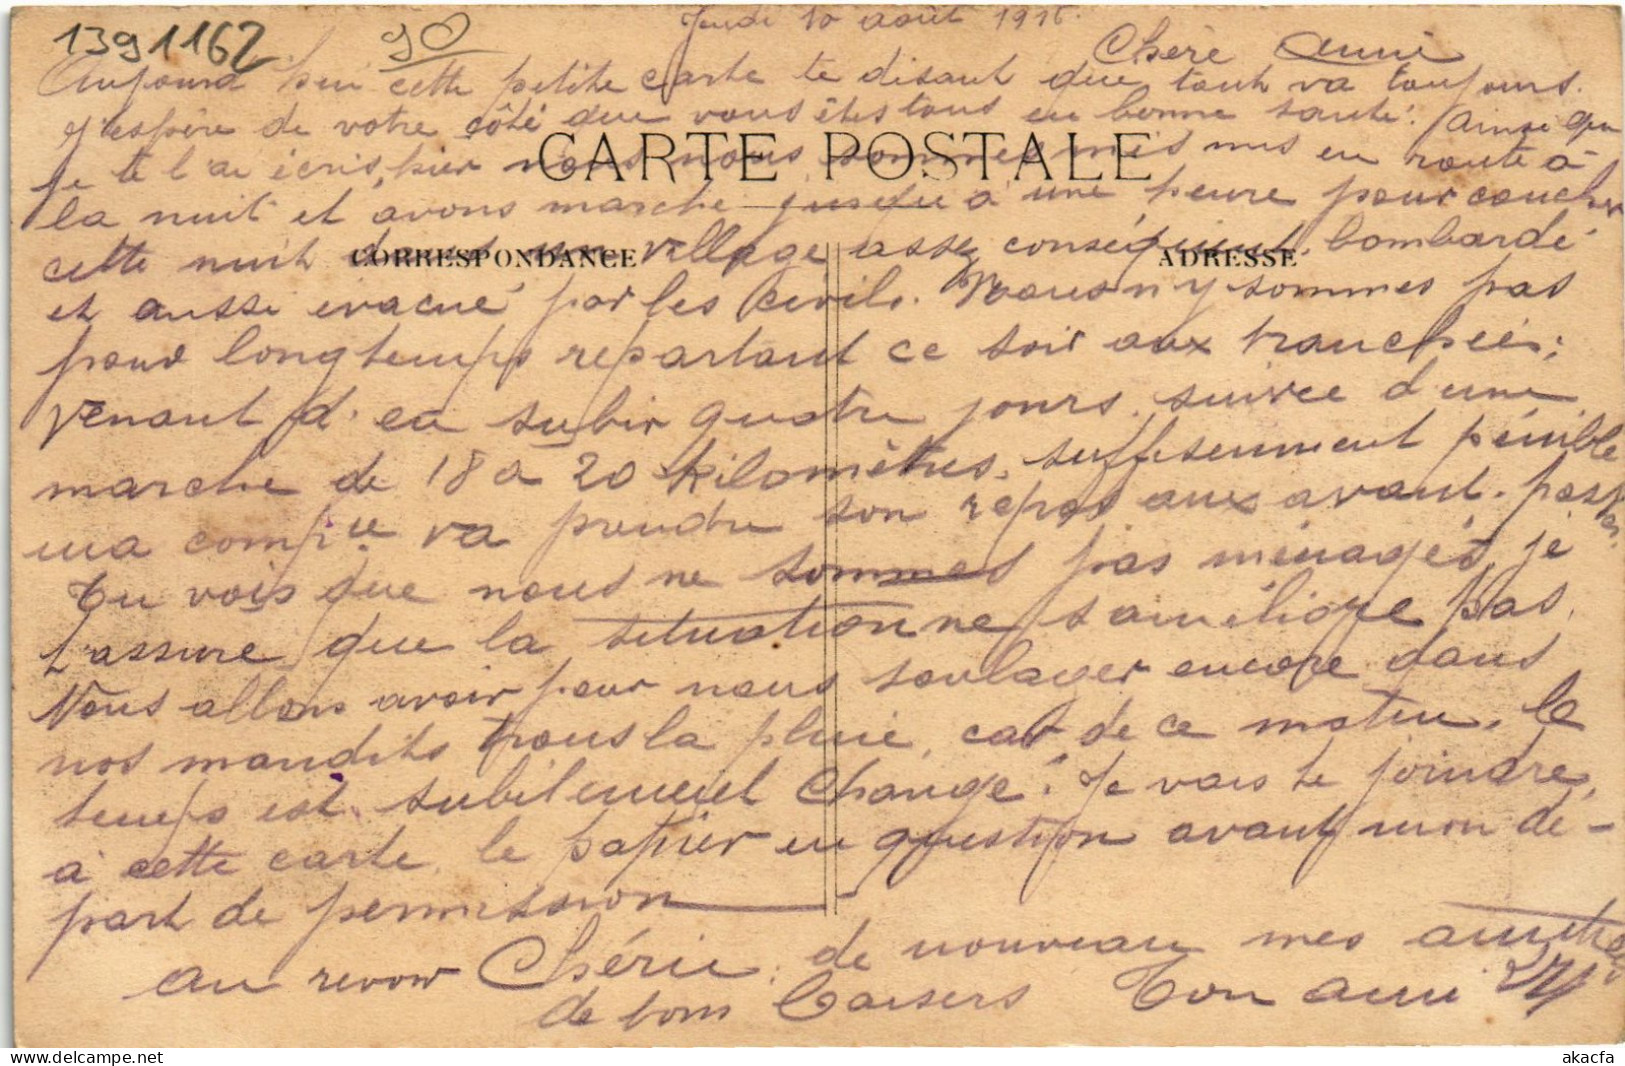 1391162
90
Jeudi 10 août 1916.
Chère Amie
Aujourd'hui cette petite carte te disant que tout va toujours.
J'espère de votre côté que vous êtes tous en bonne santé. Ainsi que
CARTE POSTALE
je te l'ai écris hier nous nous sommes mis mis en route à
la nuit et avons marché jusqu'à une heure pour coucher
cette nuit dans un village assez conséquent, bombardé
CORRESPONDANCE
ADRESSE
et aussi évacué par les civils. Nous n'y sommes pas
pour longtemps repartant ce soir aux tranchées;
venant d'en subir quatre jours, suivie d'une
marche de 18 à 20 kilomètres, suffisemment pénible
ma compie va prendre son repos aux avant-postes.
Tu vois que nous ne sommes pas ménagés, je
t'assure que la situation ne s'améliore pas.
Nous allons avoir pour nous soulager encore dans
nos maudits trous la pluie, car de ce matin, le
temps est subitement changé. Je vais te joindre,
à cette carte, le papier en question avant mon dé-
part de permission
au revoir Chérie, de nouveau mes amitiés
de bons baisers Ton ami
akacfa